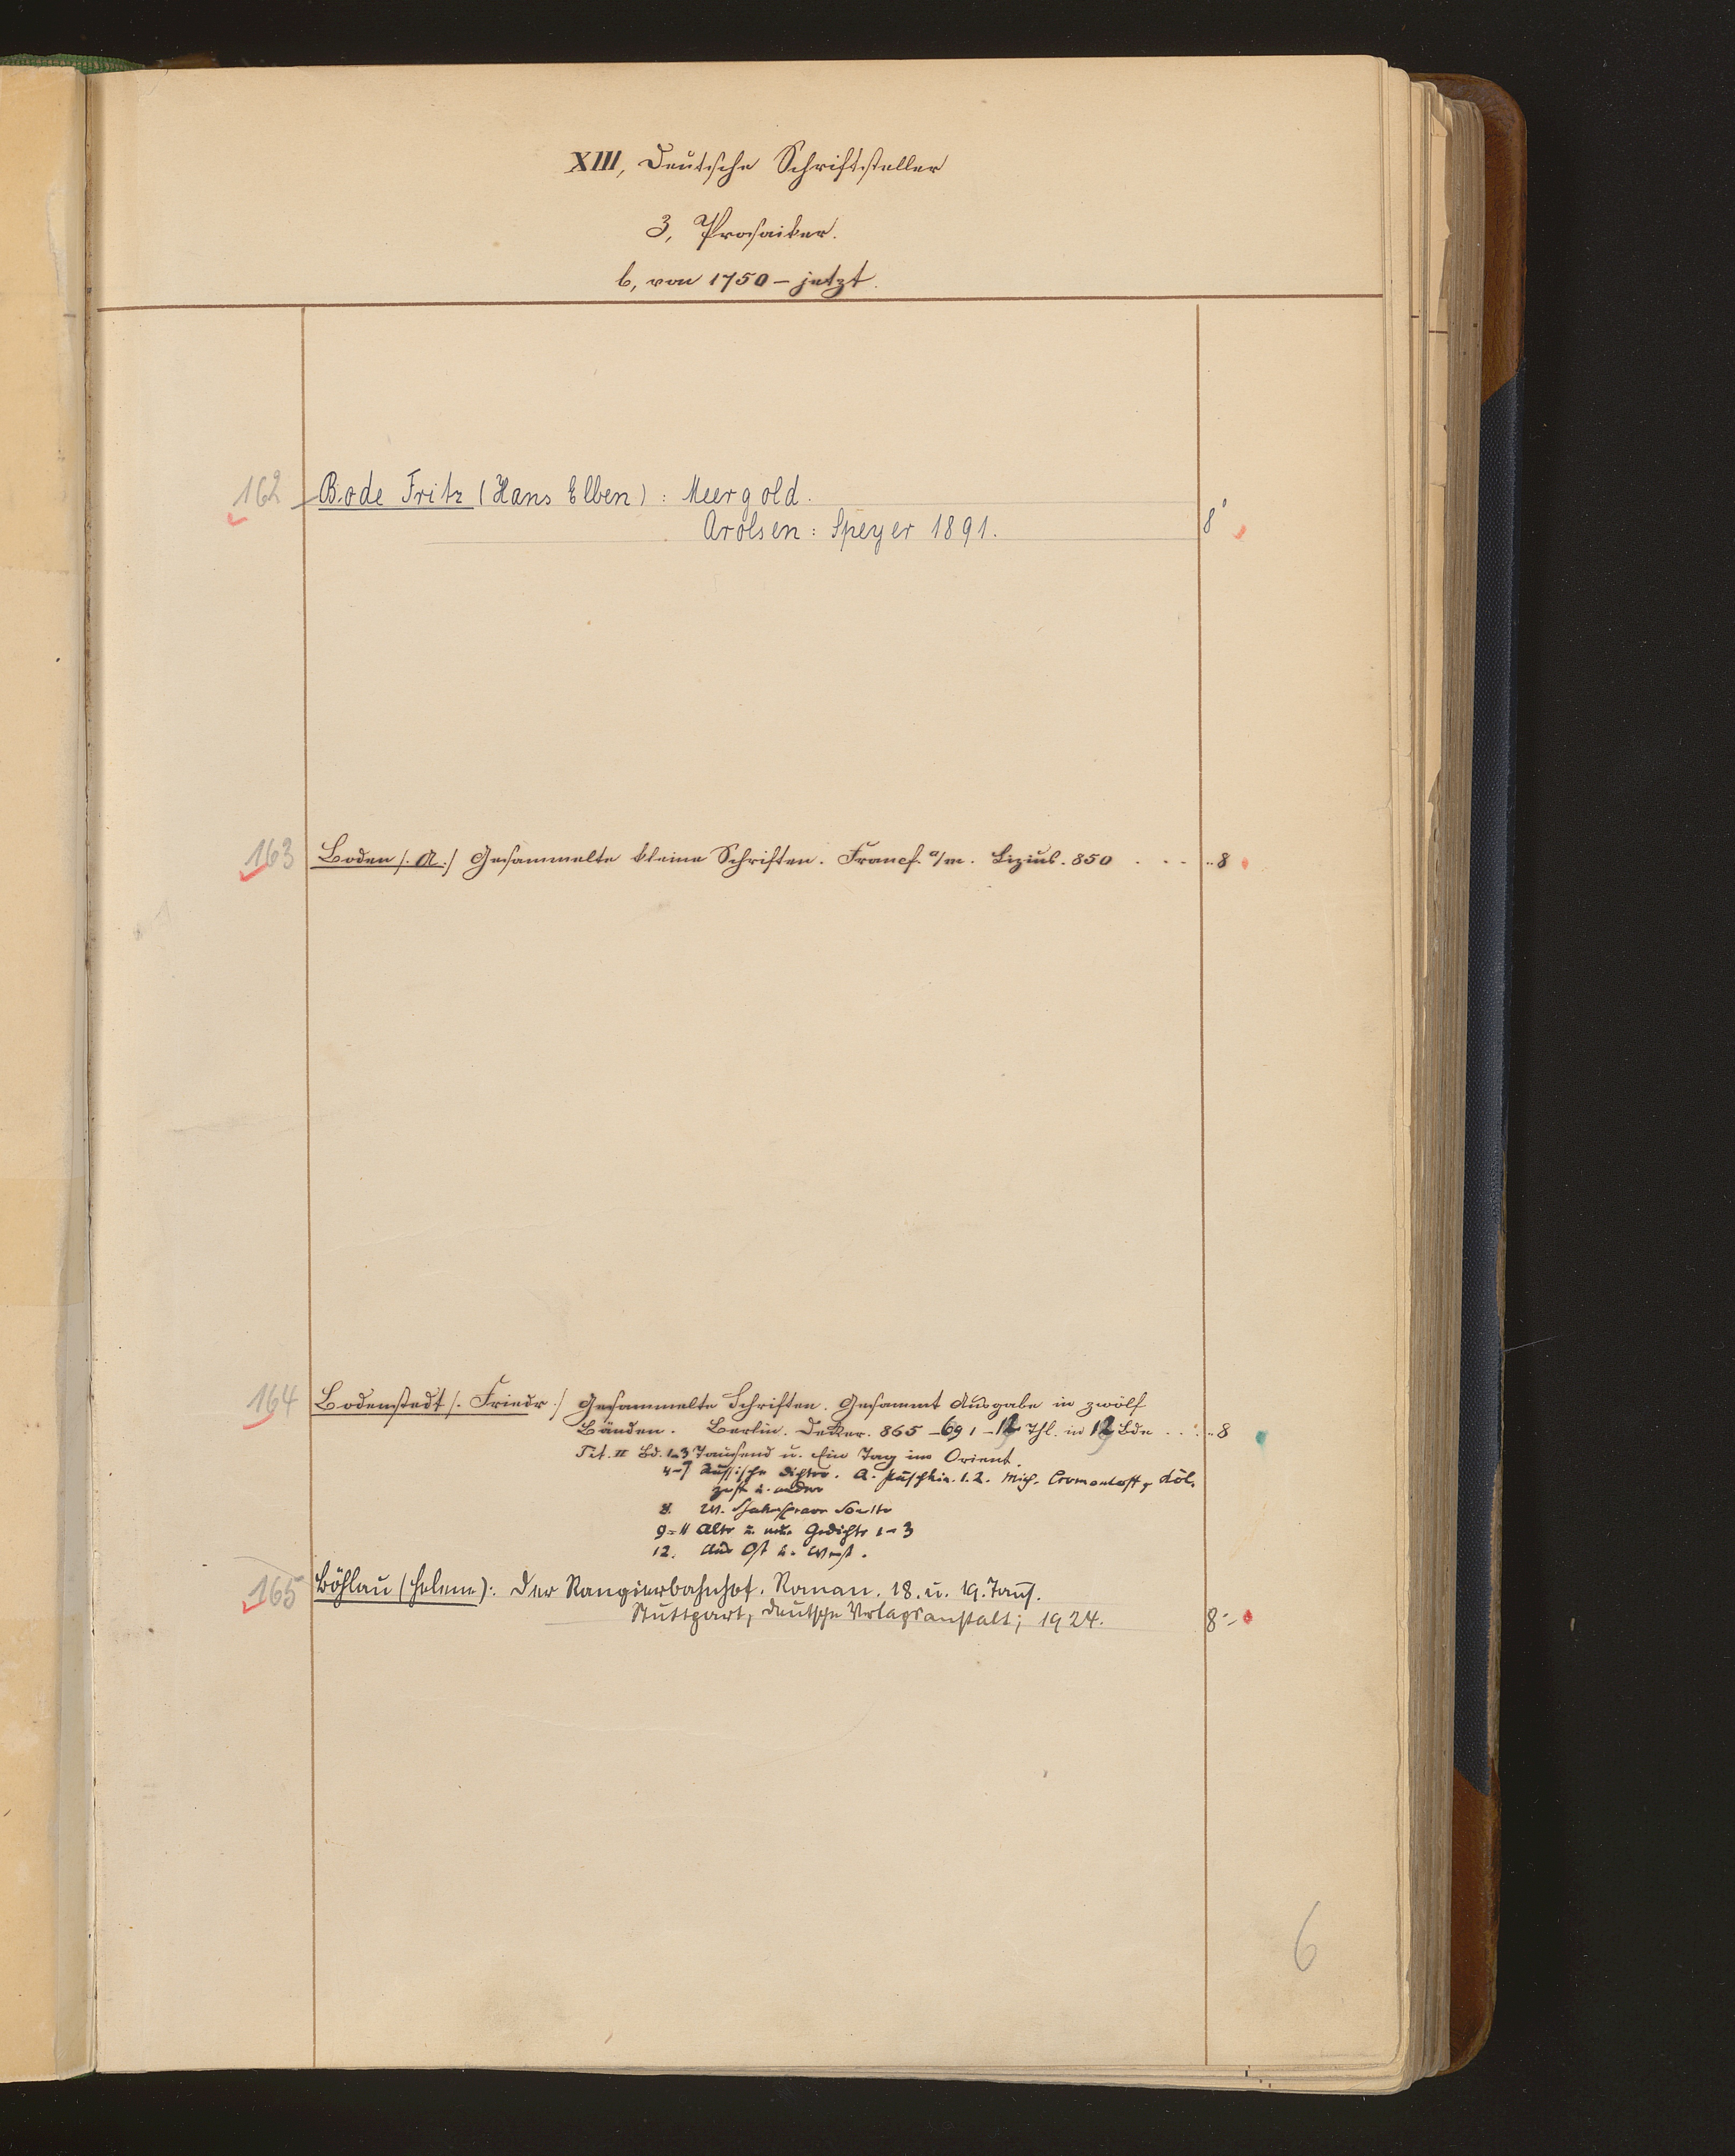 XIII, Deutsche Schriftsteller
3, Prosaiker.
b, von 1750 – jetzt.
162 Bode Fritz (Hans Elben): Meergold.
Arolsen: Speyer 1891. 8°
163 Boden /: A :/ Gesammelte kleine Schriften. Francf. a/m. Lizius. 850 . . . .. 8
164 Bodenstedt /: Friedr :/ Gesammelte Schriften. Gesammt Ausgabe in zwölf
Bänden. Berlin. Decker. 865–69 1–12 Thl. in 12 Bde . . . .. 8
Tit. II Bd. 1–3 Tausend u. Ein Tag im Orient.
4–7 Russische Dichter. A. Puschkin. 1. 2. Mich. Lermontoff, Kol-
zoff u. andere
8. W. Shakespeare Sonette
9–11 Alte u. neue Gedichte 1–3
12. Aus Ost u. West.
165 Böhlau (Helene): Der Rangierbahnhof. Roman. 18. u. 19. Taus.
Stuttgart, Deutsche Verlagsanstalt; 1924. 8°
6